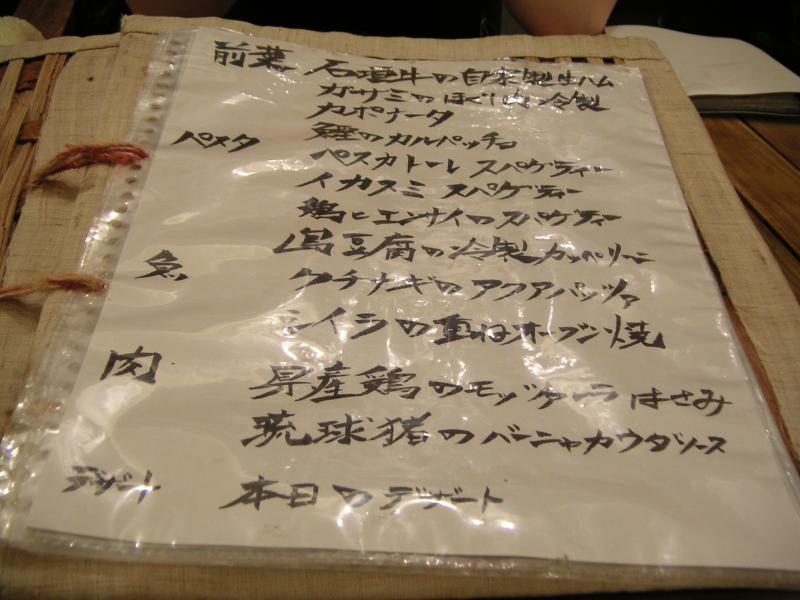 前菜 石垣牛の自家製生ハム
ガサミのほぐし肉 冷製
カポナータ
鰹のカルパッチョ
パスタ ペスカトーレ スパゲティー
イカスミ スパゲティー
鶏とエンサイのスパゲティー
島豆腐の冷製カッペリーニ
魚 クチナギのアクアパッツァ
シイラの重ねオーブン焼
肉 県産鶏のモッツァレラはさみ
琉球猪のバーニャカウダソース
デザート 本日のデザート